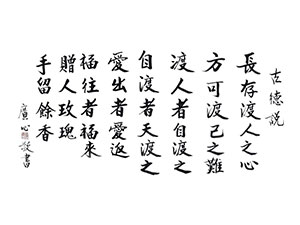 古德說
長存渡人之心
方可渡己之難
渡人者自渡之
自渡者天渡之
愛出者愛返
福往者福來
贈人玫瑰
手留餘香
廣心敬書